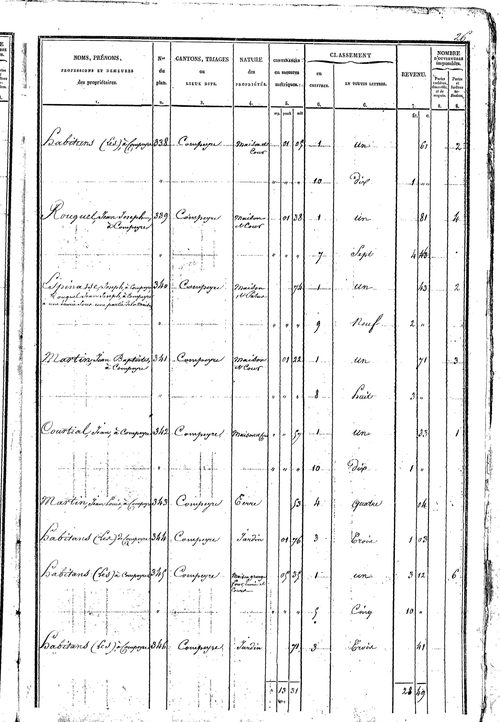 26
NOMS, PRÉNOMS,
PROFESSIONS ET DEMEURES
des propriétaires.
1.
Nos
du
plan.
2.
CANTONS, TRIAGES
ou
LIEUX DITS.
3.
NATURE
des
PROPRIÉTÉS.
4.
CONTENANCES
en mesures
métriques.
5.
CLASSEMENT
en
CHIFFRES.
6.
EN TOUTES LETTRES.
6.
REVENU.
7.
NOMBRE
D'OUVERTURES
imposables.
8.
8.
fr. c.
Habitans (Les), à Compeyre 338 Compeyre Maison et 01 05 1 un 61 2
Cour
" " " " 10 Dix 1 "
Rouquel, Jean Joseph, 339 Compeyre Maison " 01 38 1 un 81 4
à Compeyre et Cour
" " " " 7 Sept 4 43
Joseph, à Compeyre 340 Compeyre Maison 74 1 un 43 2
Jean Joseph, à Compeyre et
" " " " 9 Neuf 2 "
Martin, Jean Baptiste, 341 Compeyre Maison 01 22 1 un 71 3
à Compeyre et Cour
" " " " 8 huit 3 "
Courtial, Jean, à Compeyre 342 Compeyre " " 57 1 un 33 1
" " " " 10 Dix 1 "
Martin, Jean Louis, à Compeyre 343 Compeyre Terre 53 4 Quatre 04
Habitans (Les) de Compeyre 344 Compeyre Jardin 01 76 3 Trois 1 03
Habitans (Les) à Compeyre 345 Compeyre 05 35 1 un 3 12 6
" " " " 5 Cinq 10 "
Habitans (Les), à Compeyre 346 Compeyre Jardin 71 3 Trois 41
" 13 31 28 49